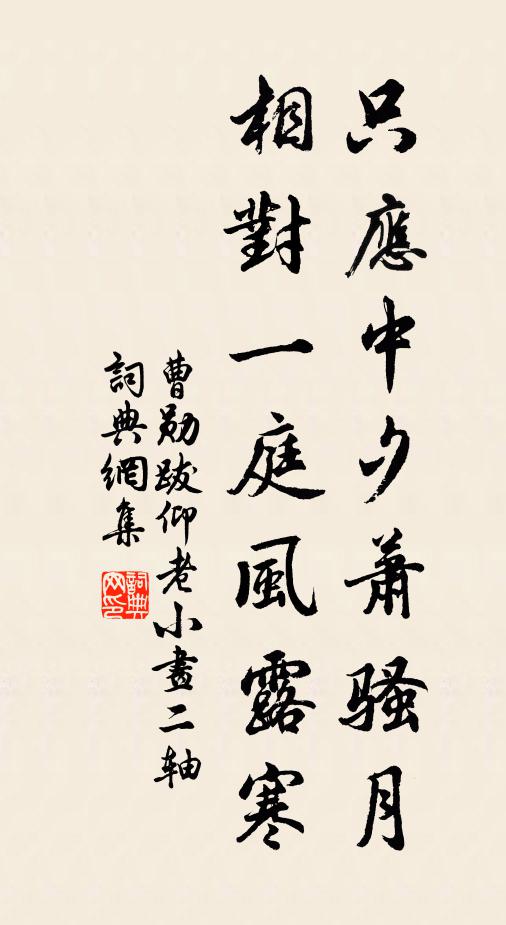 只應中夕蕭骚月
相對一庭風露寒
曹勋跋仰老小畫二轴
詞典網集
詞典网印